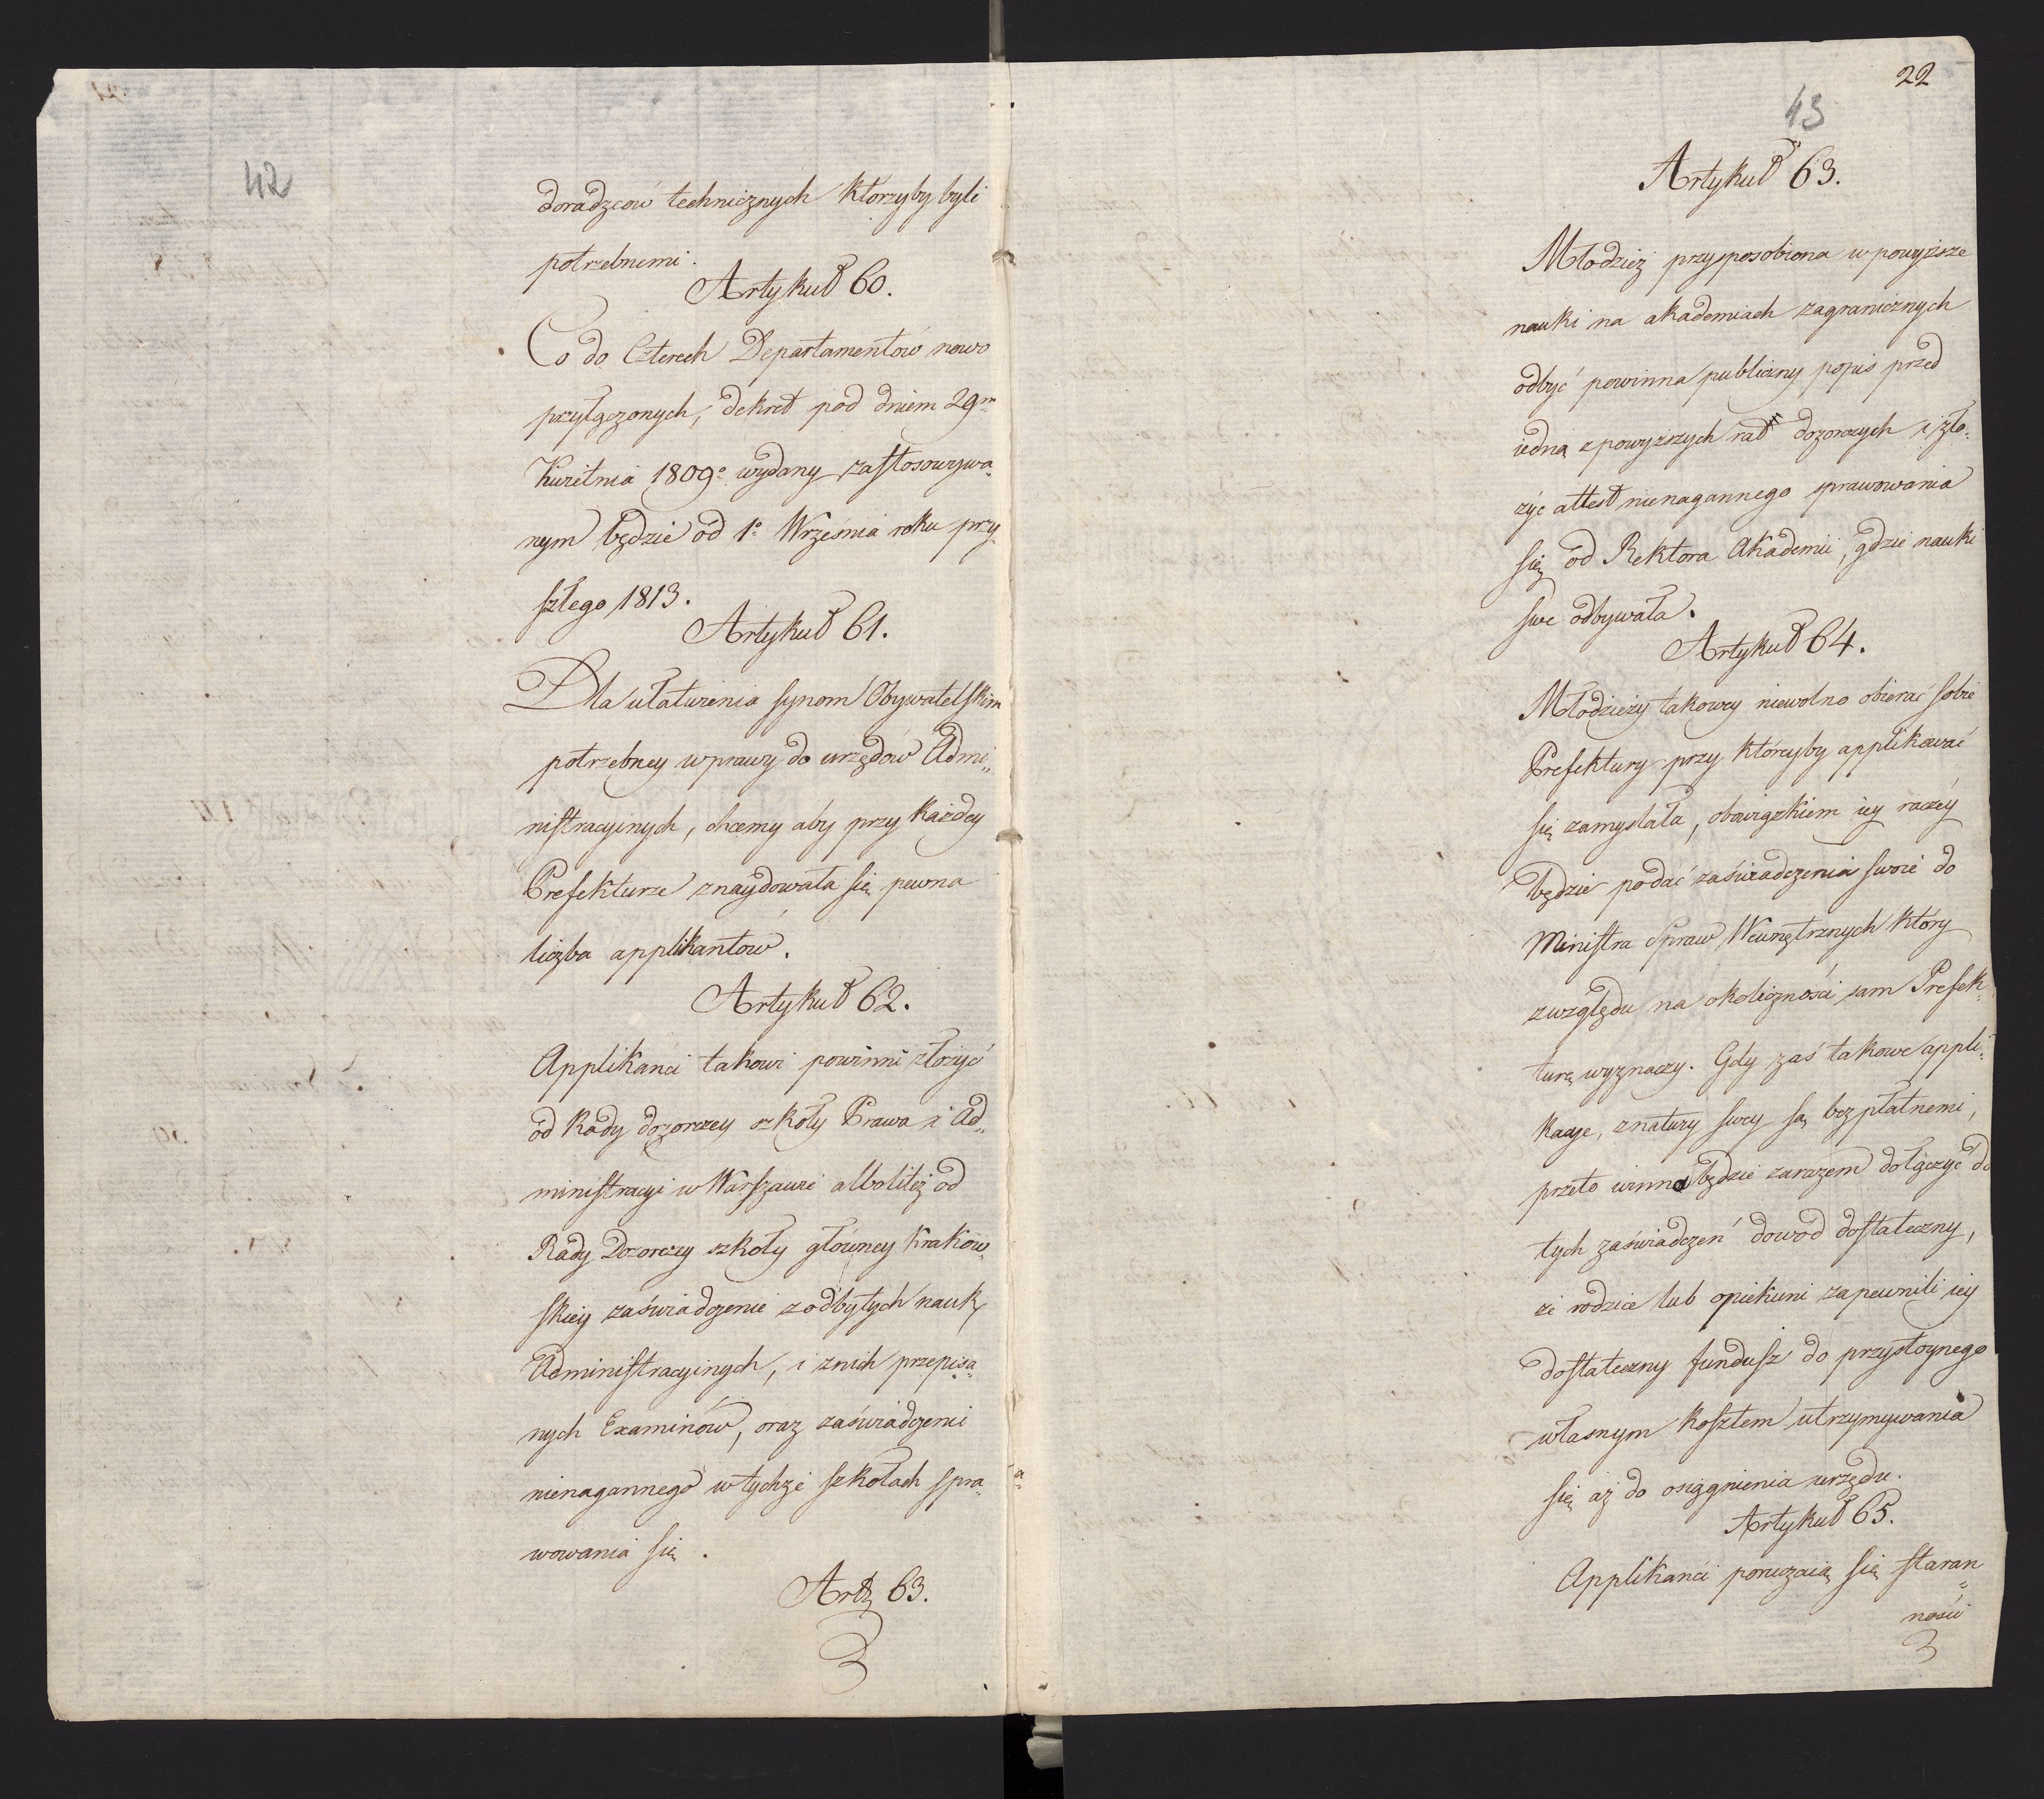 42
doradzców technicznych którzyby byli
potrzebnemi.
Artykuł 60.
Co do Czterech Departamentów nowo
przyłączonych, dekret pod dniem 29m
Kwietnia 1809o wydany zastosowywa„
nym będzie od 1o Września roku przy„
szłego 1813.
Artykuł 61.
Dla ułatwienia synom Obywatelskim
potrzebney wprawy do urzędów Admi„
nistracyinych, chcemy aby przy każdey
Prefekturze znaydowała się pewna
liczba applikantów.
Artykuł 62.
Applikanci takowi powinni złożyć
od Rady dozorczey szkoły Prawa i Ad„
ministracyi w Warszawie albolitéż od
Rady Dozorczey szkoły główney Krakow„
skiey zaświadczenie z odbytych nauk
Administracyinych, i z nich przepisa„
nych Examinów, oraz zaświadczenie
nienagannego w tychże szkołach spra„
wowania się.
Art. 63.
22
43
Artykuł 63.
Młodzież przysposobiona w powyższe
nauki na akademiach zagranicznych
odbyć powinna publiczny popis przed
iedną z powyższych rad dozorczych i zło„
żyć attest nienagannego sprawowania
się od Rektora Akademii, gdzie nauki
swe odbywała.
Artykuł 64.
Młodzieży takowey niewolno obierać sobie
Prefektury przy któreyby applikować
się zamyslała, obowiązkiem iey raczéy
będzie podać zaświadczenia swoie do
Ministra Spraw Wewnętrznych który
zwzględu na okoliczności sam Prefek„
turę wyznaczy. Gdy zaś takowe appli„
kacye, z natury swey są bezpłatnemi,
przeto winna będzie zarazem dołączyć do
tych zaświadczeń dowód dostateczny,
że rodzice lub opiekuni zapewnili iey
dostateczny fundusz do przystoynego
własnym kosztem utrzymywania
się aż do osiągnienia urzędu.
Artykuł 65.
Applikanci poruczaią się staran„
ności